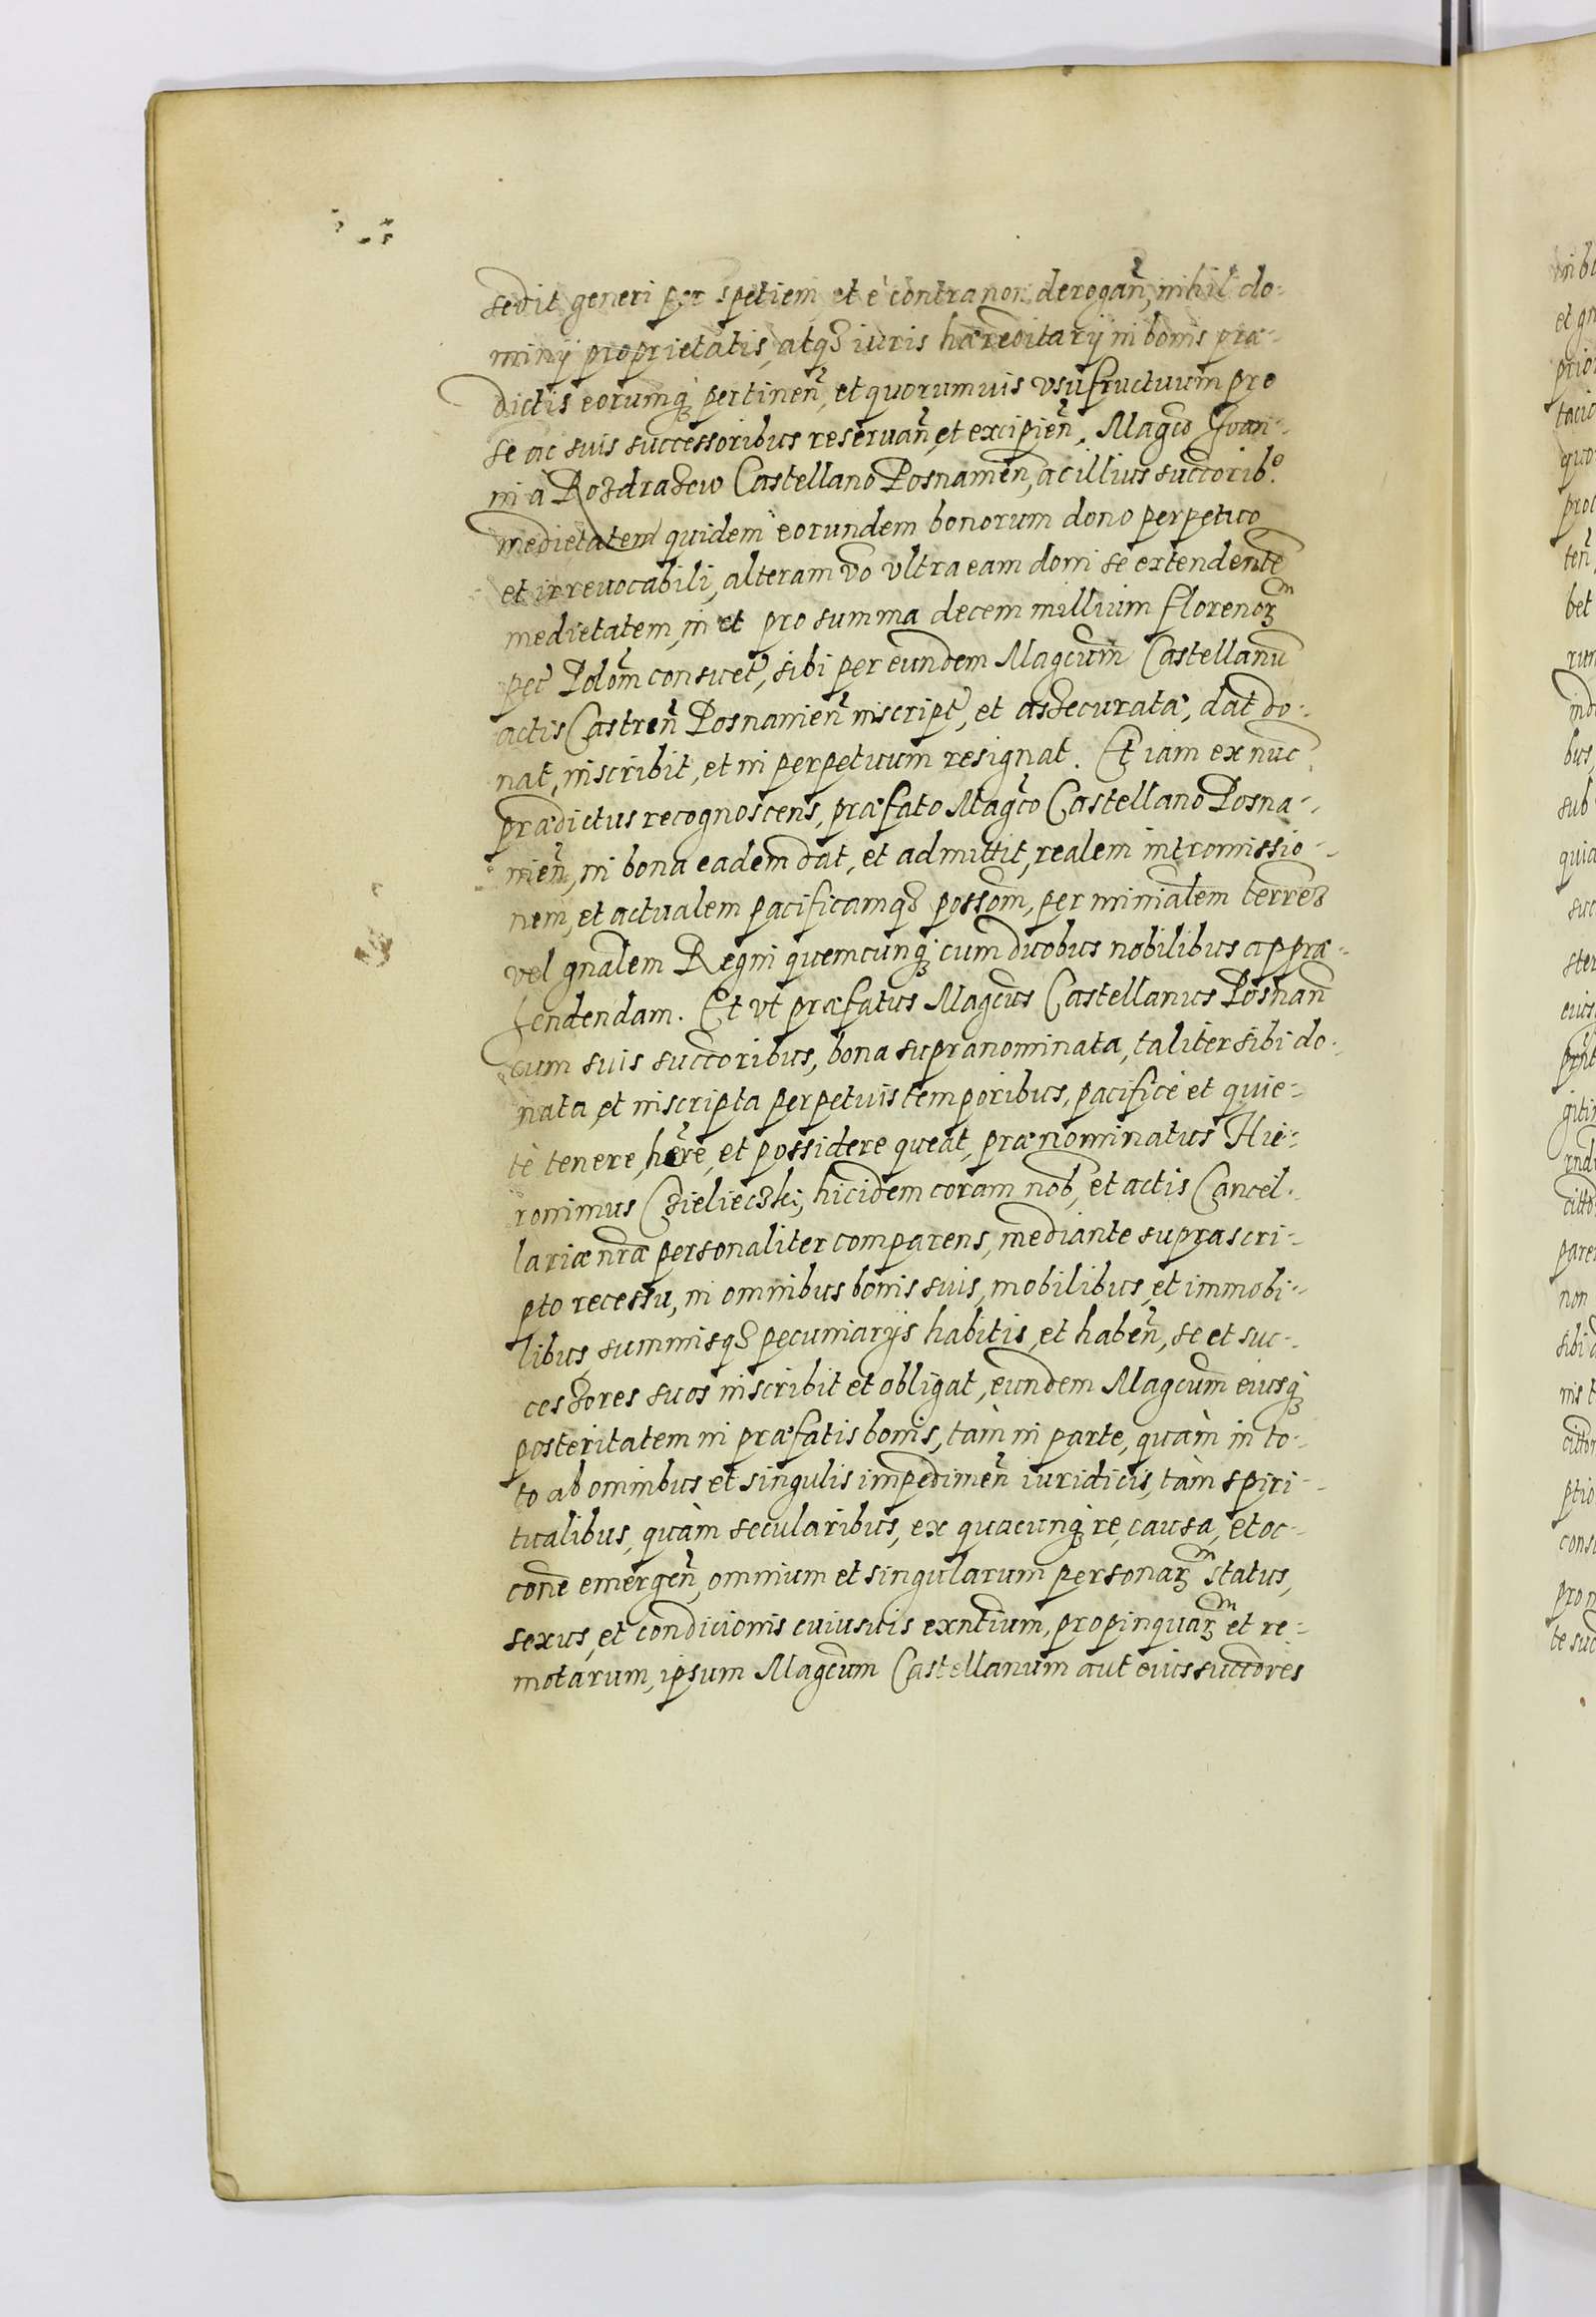 sedit, generi per spetiem, et è contra non derogañ, nihil do-
minij proprietatis, atq3 iuris hæreditarij in bonis præ-
dictis eorumq3 pertineñ, et quorumuis vsufructuum pro
se ac suis successoribus reseruañ, et excipieñ, Magco Joan-
ni à Rozdrażew Castellano Posnamen̄, ac illius succorib9
medietatem quidem eorundem bonorum dono perpetuo
et irreuocabili, alteram vo vltra eam domi se extendentē
medietatem, in et pro summa decem millium florenorm
pec̃ Polom̃ consuet̃, sibi per eundem Magcum Castellanū
actis Castreñ Posnamieñ inscript̃, et assecurata, dat do-
nat, inscribit, et in perpetuum resignat. Et iam ex nūc
prædictus recognoscens, præfato Magco Castellano Posna-
mieñ, in bona eadem dat, et admittit, realem intromissio-
nem, et actualem pacificamq3 possom, per minialem terres
vel gnalem Regni quemcunq3 cum duobus nobilibus appræ-
hendendam. Et vt præfatus Magcus Castellanus Posnan̄
cum suis succoribus, bona supranominata, taliter sibi do-
nata, et inscripta perpetuis temporibus, pacificè et quie-
tè tenere, hēre, et possidere queat, prænominatus Hie-
ronimus Czielieczki, hicidem coram nob, et actis Cancel-
lariæ nræ personaliter comparens, mediante suprascri-
pto recessu, in omnibus bonis suis, mobilibus, et immobi-
libus, summisq3 pecuniarijs habitis, et habeñ, se et suc-
cessores suos inscribit et obligat, eundem Magcum eiusq3
posteritatem in præfatis bonis, tàm in parte, quàm in to-
to ab omnibus et singulis impedimeñ iuridicis, tàm spiri-
tualibus, quàm secularibus, ex quacunq3 re, causa, et oc-
cone emergeñ, omnium et singularum personarm status,
sexus, et condicionis cuiusuis exntium, propinquarm et re-
motarum, ipsum Magcum Castellanum aut eius succores